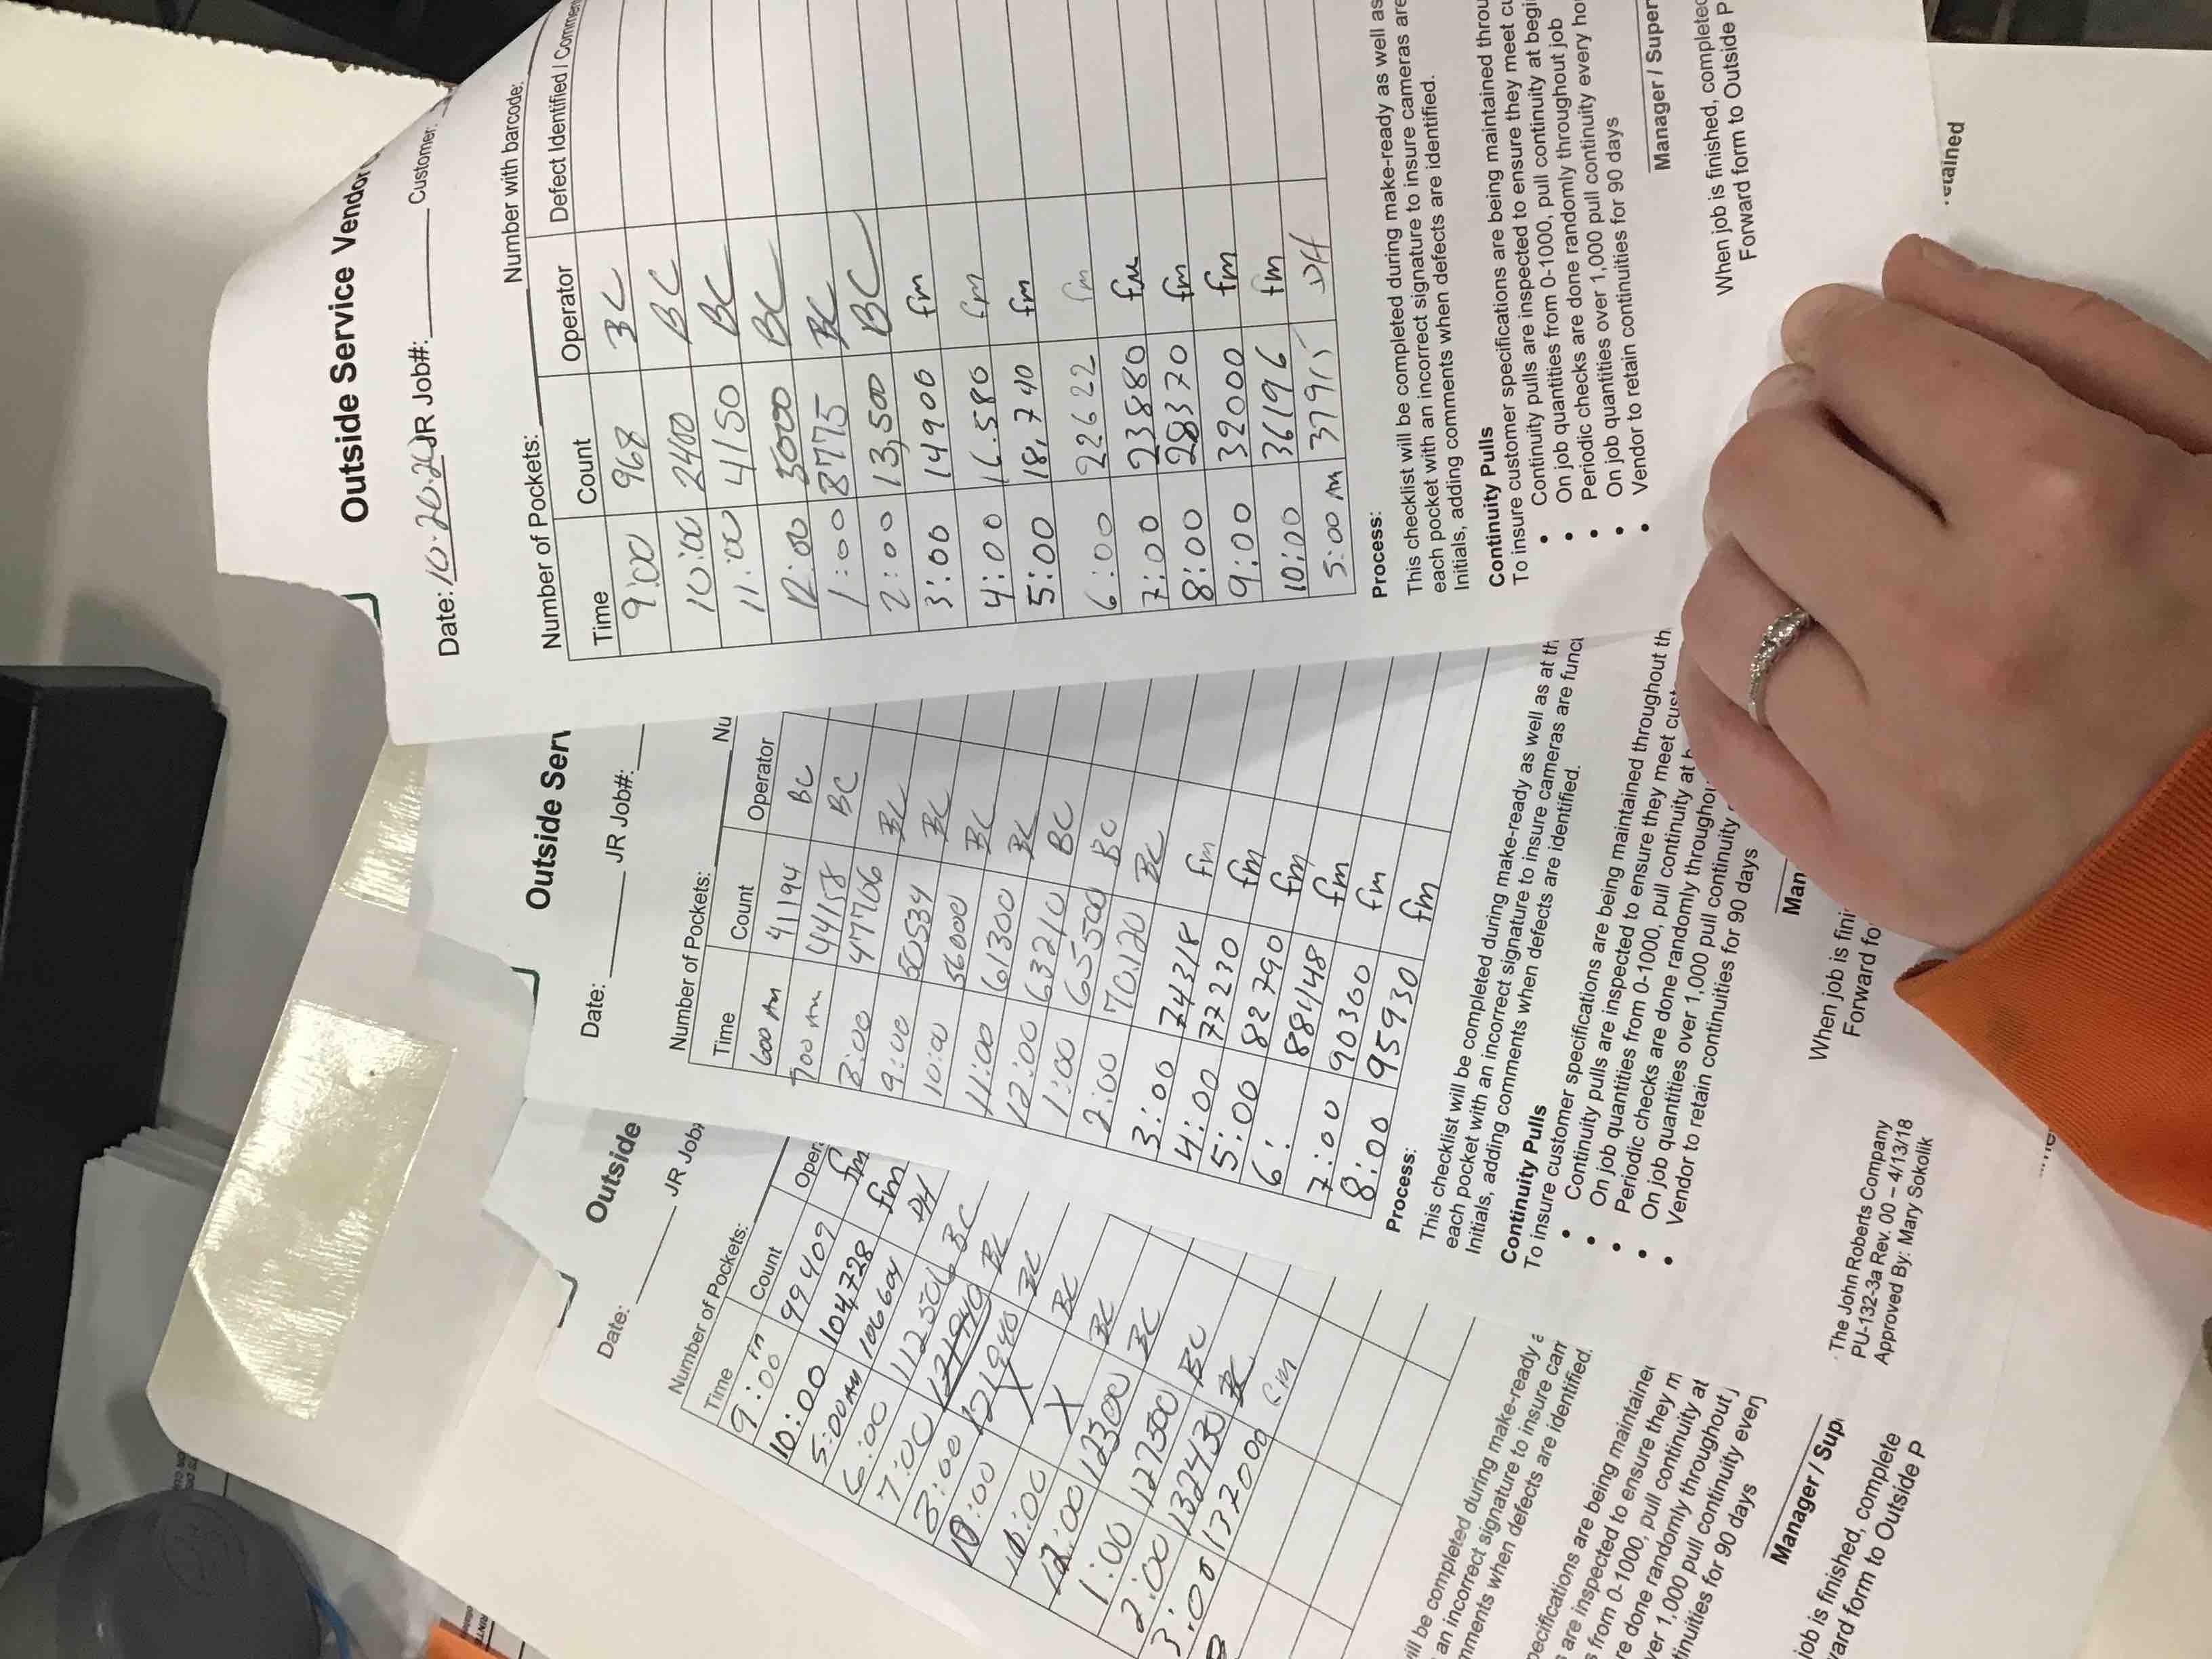 Outside Service Vendor
Date: 10.20.21 JR Job#: Customer:
Number of Pockets: Number with barcode:
Time Count Operator Defect Identified / Commen
9:00 968 BC
10:00 2400 BC
11:00 4150 BC
12:00 5000 BC
1:00 8775 BC
2:00 13,500 BC
3:00 14900 fm
4:00 16.580 fm
5:00 18,740 fm
6:00 22622 fm
7:00 23880 fm
8:00 28370 fm
9:00 32000 fm
10:00 36196 fm
5:00 AM 37955
Process:
This checklist will be completed during make-ready as well as
each pocket with an incorrect signature to insure cameras are
Initials, adding comments when defects are identified.
Continuity Pulls
To insure customer specifications are being maintained throu
• Continuity pulls are inspected to ensure they meet cu
• On job quantities from 0-1000, pull continuity at begi
• Periodic checks are done randomly throughout job
• On job quantities over 1,000 pull continuity every ho
• Vendor to retain continuities for 90 days
Manager / Super
When job is finished, completed
Forward form to Outside P
etained
Outside Serv
Date: JR Job#:
Number of Pockets: Nu
Time Count Operator
600 AM 41194 BC
700 AM 44158 BC
8:00 47706 BC
9:00 50534 BC
10:00 56000 BC
11:00 61300 BC
12:00 63210 BC
1:00 65500 BC
2:00 70,120 BC
3:00 74318 fm
4:00 77230 fm
5:00 82790 fm
6: 88448 fm
7:00 90300 fm
8:00 95930 fm
Process:
This checklist will be completed during make-ready as well as at th
each pocket with an incorrect signature to insure cameras are func
Initials, adding comments when defects are identified.
Continuity Pulls
To insure customer specifications are being maintained throughout th
• Continuity pulls are inspected to ensure they meet cust
• On job quantities from 0-1000, pull continuity at b
• Periodic checks are done randomly throughou
• On job quantities over 1,000 pull continuity
• Vendor to retain continuities for 90 days
Man
When job is fini
Forward fo
The John Roberts Company
PU-132-3a Rev. 00 – 4/13/18
Approved By: Mary Sokolik
Outside
Date: JR Job#
Number of Pockets:
Time Count Oper
9:00 99409 fm
10:00 104,728 fm
5:00 AM 106604 DH
6:00 112501 BC
7:00 121940 BC
8:00 121940 BC
10:00 X BC
11:00 X BC
12:00 12300 BC
1:00 127500 BC
2:00 132430 BC
3:00 137000 fm
ill be completed during make-ready a
an incorrect signature to insure cam
mments when defects are identified.
pecifications are being maintained
are inspected to ensure they m
from 0-1000, pull continuity at
re done randomly throughout j
ver 1,000 pull continuity every
tinuities for 90 days
Manager / Sup
job is finished, complete
ward form to Outside P